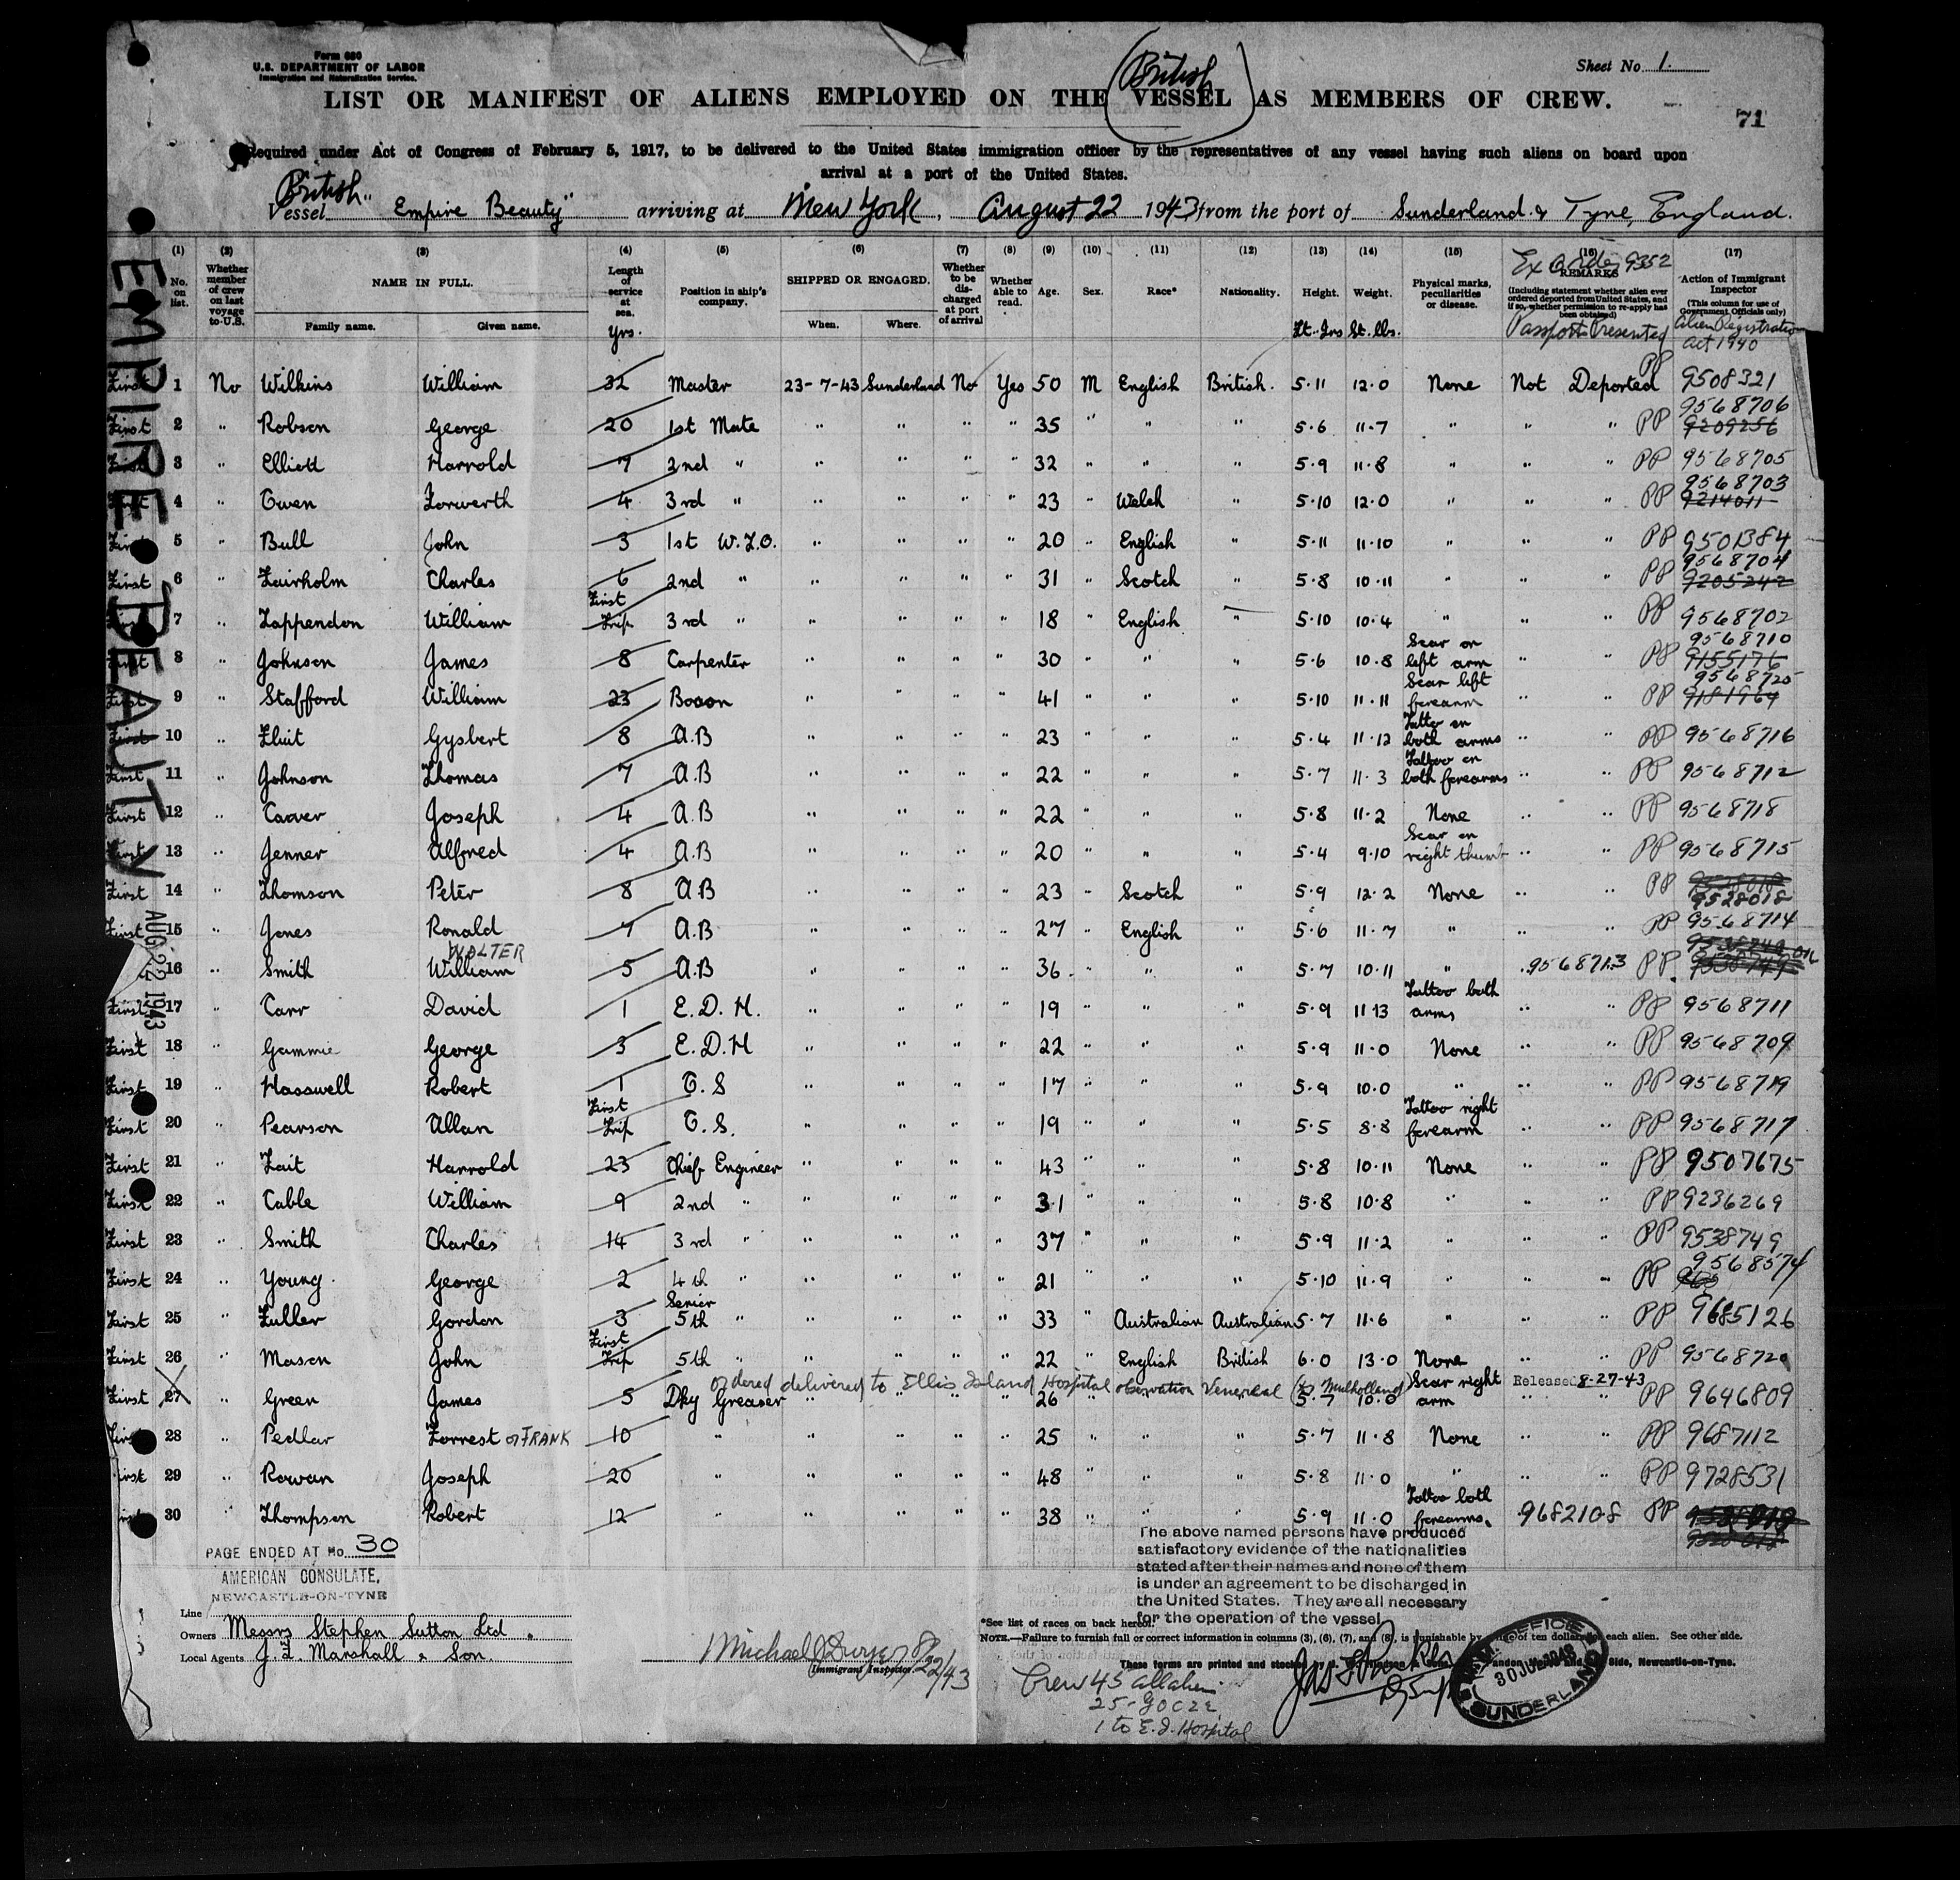 Form 680
U.S. DEPARTMENT OF LABOR
Immigration and Naturalization Service.
Sheet No. 1.
British
LIST OR MANIFEST OF ALIENS EMPLOYED ON THE VESSEL AS MEMBERS OF CREW.
71
Required under Act of Congress of February 5, 1917, to be delivered to the United States immigration officer by the representatives of any vessel having such aliens on board upon
arrival at a port of the United States.
British
Vessel "Empire Beauty" arriving at New York, August 22 1943 from the port of Sunderland & Tyne, England.
EMPIRE BEAUTY
AUG 22 1943
(1) (2) (3) (4) (5) (6) (7) (8) (9) (10) (11) (12) (13) (14) (15) (16) (17)
No. on list.
Whether member of crew on last voyage to U.S.
NAME IN FULL.
Family name. Given name.
Length of service at sea. Yrs.
Position in ship's company.
SHIPPED OR ENGAGED.
When. Where.
Whether to be discharged at port of arrival
Whether able to read.
Age.
Sex.
Race*
Nationality.
Height. Ft. Ins
Weight. St. lbs.
Physical marks, peculiarities or disease.
Ex Order 9352
REMARKS
(Including statement whether alien ever ordered deported from United States, and if so, whether permission to re-apply has been obtained)
Passports Presented
Action of Immigrant Inspector
(This column for use of Government Officials only)
Alien Registration Act 1940
First 1 No Wilkins William 32 Master 23-7-43 Sunderland No Yes 50 M English British. 5.11 12.0 None Not Deported PP 9508321
First 2 " Robson George 20 1st Mate " " " " 35 " " " 5.6 11.7 " " " PP 9568706 9209256
First 3 " Elliott Harrold 7 2nd " " " " " 32 " " " 5.9 11.8 " " " PP 9568705
First 4 " Owen Iorwerth 4 3rd " " " " " 23 " Welch " 5.10 12.0 " " " PP 9568703 9214011
First 5 " Bull John 3 1st W.T.O. " " " " 20 " English " 5.11 11.10 " " " PP 9501384
First 6 " Fairholm Charles 6 2nd " " " " " 31 " Scotch " 5.8 10.11 " " " PP 9568704 9205242
First 7 " Tappendon William First Trip 3rd " " " " " 18 " English " 5.10 10.4 " " " PP 9568702
First 8 " Johnson James 8 Carpenter " " " " 30 " " " 5.6 10.8 Scar on left arm " " PP 9568710 9155176
First 9 " Stafford William 23 Boson " " " " 41 " " " 5.10 11.11 Scar left forearm " " PP 9568720 9181964
First 10 " Fluit Gysbert 8 A.B " " " " 23 " " " 5.4 11.12 Tattoo on both arms " " PP 9568716
First 11 " Johnson Thomas 7 A.B " " " " 22 " " " 5.7 11.3 Tattoo on both forearms " " PP 9568712
First 12 " Carver Joseph 4 A.B " " " " 22 " " " 5.8 11.2 None " " PP 9568718
First 13 " Jenner Alfred 4 A.B " " " " 20 " " " 5.4 9.10 Scar on right thumb " " PP 9568715
First 14 " Thomson Peter 8 A.B " " " " 23 " Scotch " 5.9 12.2 None " " PP 9528018
First 15 " Jones Ronald 7 A.B " " " " 27 " English " 5.6 11.7 " " " PP 9568714
First 16 " Smith WALTER William 5 A.B " " " " 36 " " " 5.7 10.11 " 9568713 PP 9538749
First 17 " Carr David 1 E.D.H. " " " " 19 " " " 5.9 11 13 Tattoo both arms " " PP 9568711
First 18 " Gammie George 3 E.D.H " " " " 22 " " " 5.9 11.0 None " " PP 9568709
First 19 " Hasswell Robert 1 O.S " " " " 17 " " " 5.9 10.0 " " " PP 9568719
First 20 " Pearson Allan First Trip O.S. " " " " 19 " " " 5.5 8.8 Tattoo right forearm " " PP 9568717
First 21 " Tait Harrold 23 Chief Engineer " " " " 43 " " " 5.8 10.11 None " " PP 9507675
First 22 " Cable William 9 2nd " " " " " 31 " " " 5.8 10.8 " " " PP 9236269
First 23 " Smith Charles 14 3rd " " " " " 37 " " " 5.9 11.2 " " " PP 9538749
First 24 " Young George 2 4th " " " " " 21 " " " 5.10 11.9 " " " PP 9568574
First 25 " Fuller Gordon 3 Senior 5th " " " " " 33 " Australian Australian 5.7 11.6 " " " PP 9685126
First 26 " Mason John First Trip 5th " " " " " 22 " English British 6.0 13.0 None " " PP 9568720
ordered delivered to Ellis Island Hospital observation Venereal (Dr Mulholland) Released 8-27-43
First 27 " Green James 5 Dky Greaser " " " " 26 " " " 5.7 10.0 Scar right arm " " PP 9646809
First 28 " Pedlar Forrest or FRANK 10 " " " " " 25 " " " 5.7 11.8 None " " PP 9687112
First 29 " Rowan Joseph 20 " " " " " 48 " " " 5.8 11.0 " " " PP 9728531
First 30 " Thompson Robert 12 " " " " " 38 " " " 5.9 11.0 Tattoo both forearms. 9682108 PP
PAGE ENDED AT No. 30
AMERICAN CONSULATE,
NEWCASTLE-ON-TYNE
The above named persons have produced
satisfactory evidence of the nationalities
stated after their names and none of them
is under an agreement to be discharged in
the United States. They are all necessary
for the operation of the vessel
Line
Owners Messrs Stephen Sutton Ltd.
Local Agents J. T. Marshall & Son.
Michael J. Dwyer 8/22/43
Immigrant Inspector
*See list of races on back hereof.
NOTE.—Failure to furnish full or correct information in columns (3), (6), (7), and (8), is punishable by fine of ten dollars for each alien. See other side.
These forms are printed and stocked by Side, Newcastle-on-Tyne.
Crew 45 all aliens
1 to E.I. Hospital
OFFICE
SUNDERLAND